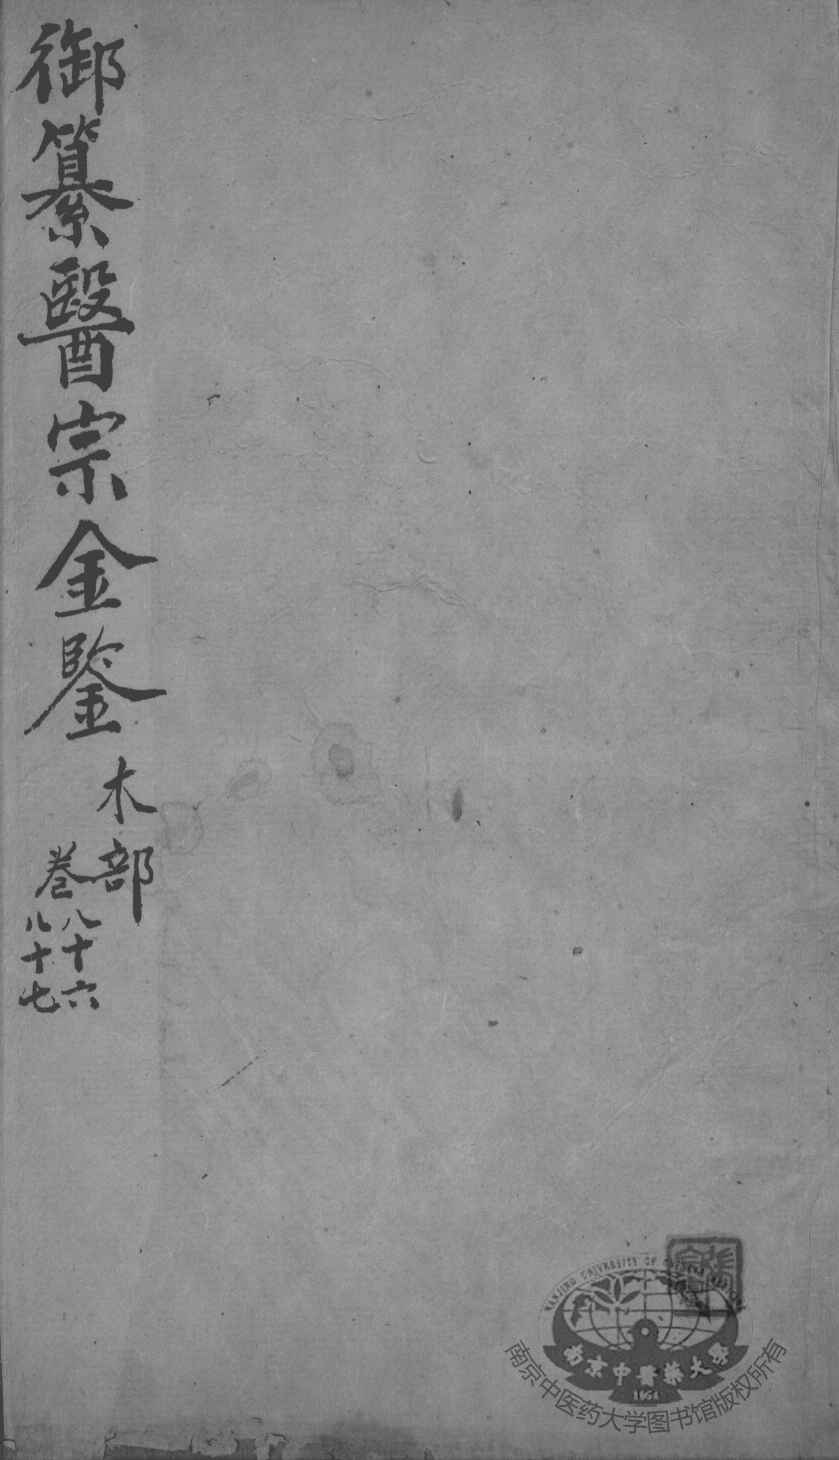 御纂醫宗金鑒
木部
卷
八十六
八十七
NANJING UNIVERSITY OF
南京中醫藥大學
1954
南京中医药大学图书馆版权所有